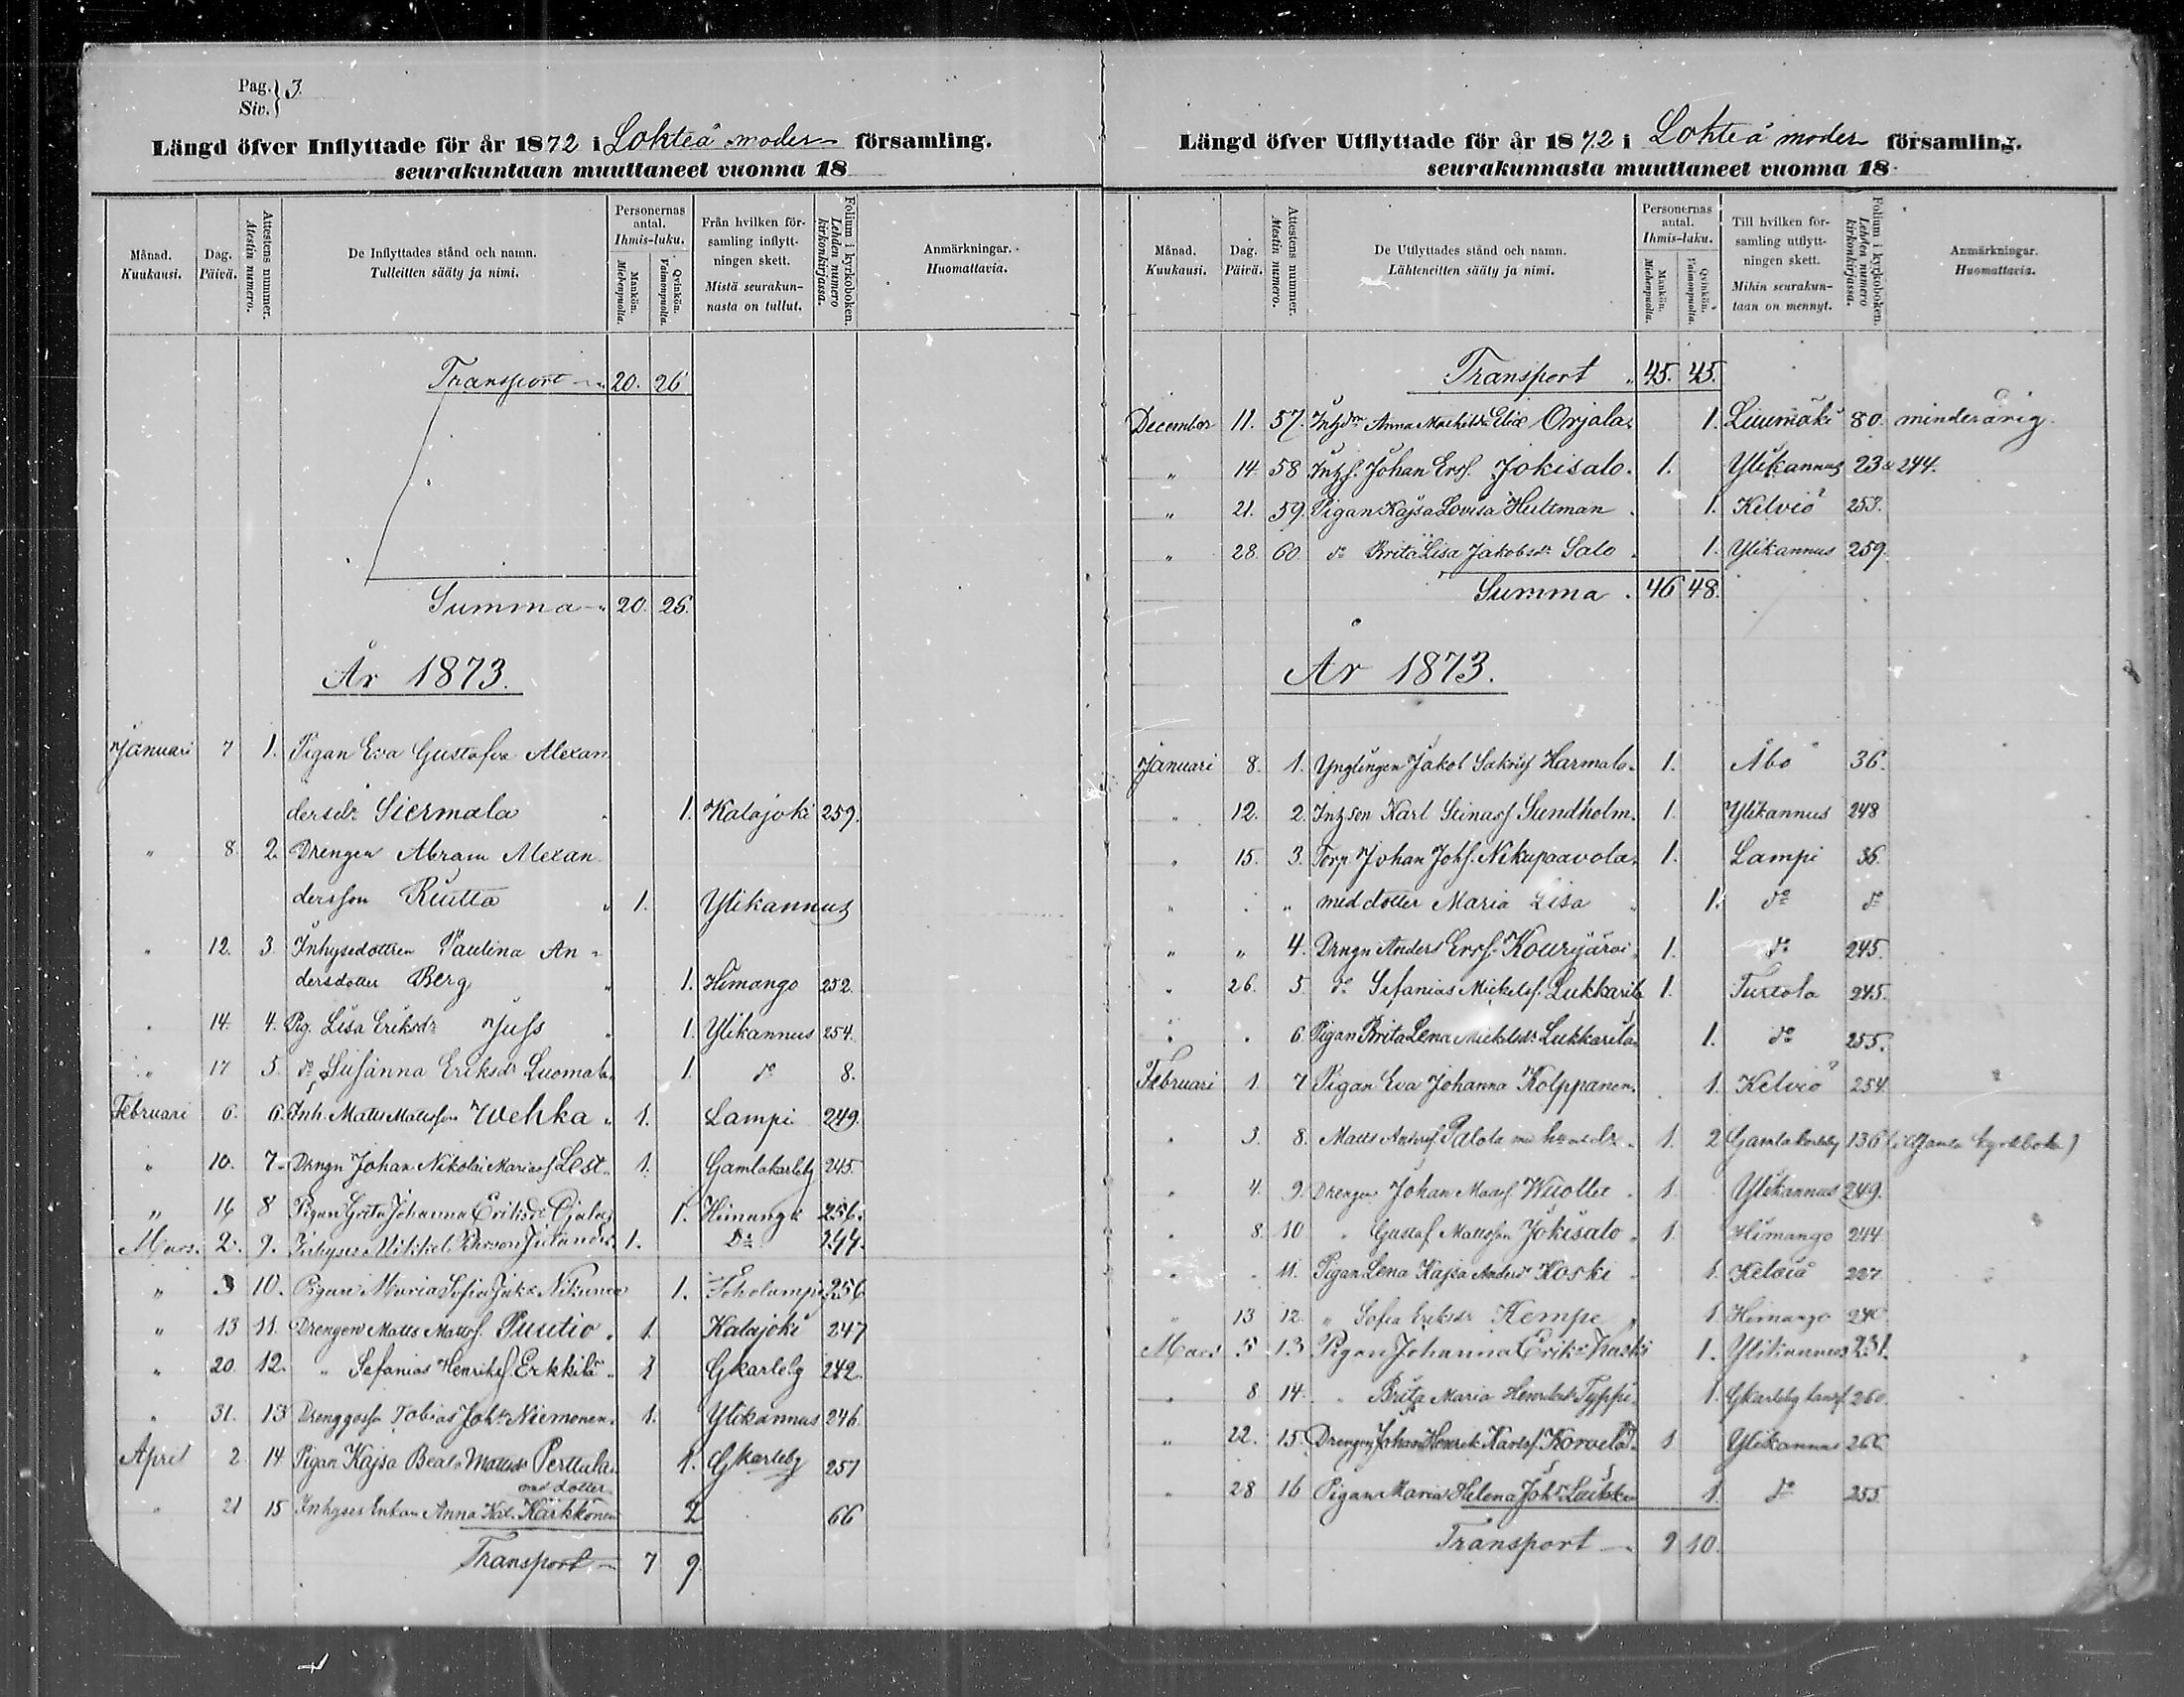 Pag. } 3.
Siv. }
Längd öfver Inflyttade för år 1872 i Lohteå moder församling.
seurakuntaan muuttaneet vuonna 18
Månad. Kuukausi. Dag. Päivä. Attestens nummer. Atestin numero. De Inflyttades stånd och namn. Tulleitten sääty ja nimi. Personernas antal. Ihmis-luku. Mankön. Miehenpuolta. Qvinkön. Vaimonpuolta. Från hvilken församling inflyttningen skett. Mistä seurakunnasta on tullut. Folium i kyrkoboken. Lehden numero kirkonkirjassa. Anmärkningar. Huomattavia.
Transport 20. 26
Summa 20. 26.
År 1873.
Januari 7 1. Pigan Eva Gustafva Alexan
dersdr Siermala 1. Kalajoki 259.
" 8 2. Drengen Abram Alexan
dersson Ruitta " 1. Ylikannus
" 12. 3. Inhysedottren Paulina An-
dersdotter Berg " 1. Himango 252.
" 14. 4. Pig. Lisa Eriksdr Juss 1. Ylikannus 254.
" 17 5. do Susanna Eriksdr Luomala 1. do 8.
Februari 6. 6. Inh. Matts Mattsson Wehka " 1. Lampi 249.
" 10. 7. Drngn Johan Nikolai Mariasf Lest 1. Gamlakarleby 245.
" 16 8 Pigan Greta Johanna Eriksdr Ojala 1. Himanga 256.
Mars. 2. 9. Inhyses Mikkel 1. Do 244.
" 3 10. Pigan Maria Sofia Jakr 1. Toholampi 256
" 13 11. Drengen Matts Mattsf. Puutio. 1. Kalajoki 247
" 20. 12. " Sefanias Henriksf Erkkilä 1 Gkarleby 242.
" 31. 13 Tobias Johs Niemonen. 1. Ylikannus 246.
April 2 14 Pigan Kajsa Beata Mattsdr Perttula 1. Gkarleby 257
med dotter
" 21 15 Inhyses Enkan Anna Kar. Kärkkönen 2 66
Transport 7 9.
Längd öfver Utflyttade för år 1872 i Lohteå moder församling.
seurakunnasta muuttaneet vuonna 18
Månad. Kuukausi. Dag. Päivä. Attestens nummer. Atestin numero. De Utflyttades stånd och namn. Lähteneitten sääty ja nimi. Personernas antal. Ihmis-luku. Mankön. Miehenpuolta. Qvinkön. Vaimonpuolta. Till hvilken församling utflyttningen skett. Mihin seurakuntaan on mennyt. Folium i kyrkoboken. Lehden numero kirkonkirjassa. Anmärkningar. Huomattavia.
Transport " 45. 45.
December 11. 57. Anna Orjala. 1. Liumäki 80. minderårig.
" 14. 58 Inhs. Johan Ersf. Jokisalo. 1. Ylikannus 23 & 244.
" 21. 59. Pigan Kajsa Lovisa Hultman 1. Kelviå 253.
" 28. 60. do Brita Lisa Jakobsdr Salo 1. Ylikannus 259.
Summa 46 48.
År 1873.
Januari 8. 1. Ynglingen Jakob Sakrisf Harmala. 1. Åbo 36.
" 12. 2. Inhson Karl Stinasf Sundholm. 1. Ylikannus 248
" 15. 3. Torp Johan Johsf. Nikupaavola 1. Lampi 36.
" . " med dotter Maria Lisa 1. do do
" " 4. Drngn Anders Ersf. Kourijärvi 1. do 245.
" 26. 5. do Sefanias Mickelsf. Lukkarila 1. Turtola 245.
" . 6 Pigan Brita Lena Mickelsdr Lukkarila 1. do 255.
Februari 1. 7 Pigan Eva Johanna Kolppanen. 1. Kelviå 254
" 3. 8. Matts Andersf Palola 1. 2 Gamlakarleby 136 (i Gamla kyrkboken)
" 4. 9. Drengen Johan Mattsf. Wuollet 1. Ylikannus 249.
" 8. 10 " Gustaf Mattsson Jokisalo 1. Himango 244
" . 11. Pigan Lena Kajsa Andersdr Koski 1. Kelviå 227
" 13 12. " Sofia Eriksdr Kempe 1 Himango 240
Mars 5 13 Pigan Johanna Eriksdr Kaski 1. Ylikannus 231.
" 8 14. " Brita Maria Henriksdr Typpö 1. Gkarleby landsf. 260
" 22. 15. Drengen Johan Henrik Karlsf. Korvela 1 Ylikannus
" 28 16 Pigan Maria Helena Johsdr 1. do 255
Transport 9 10.